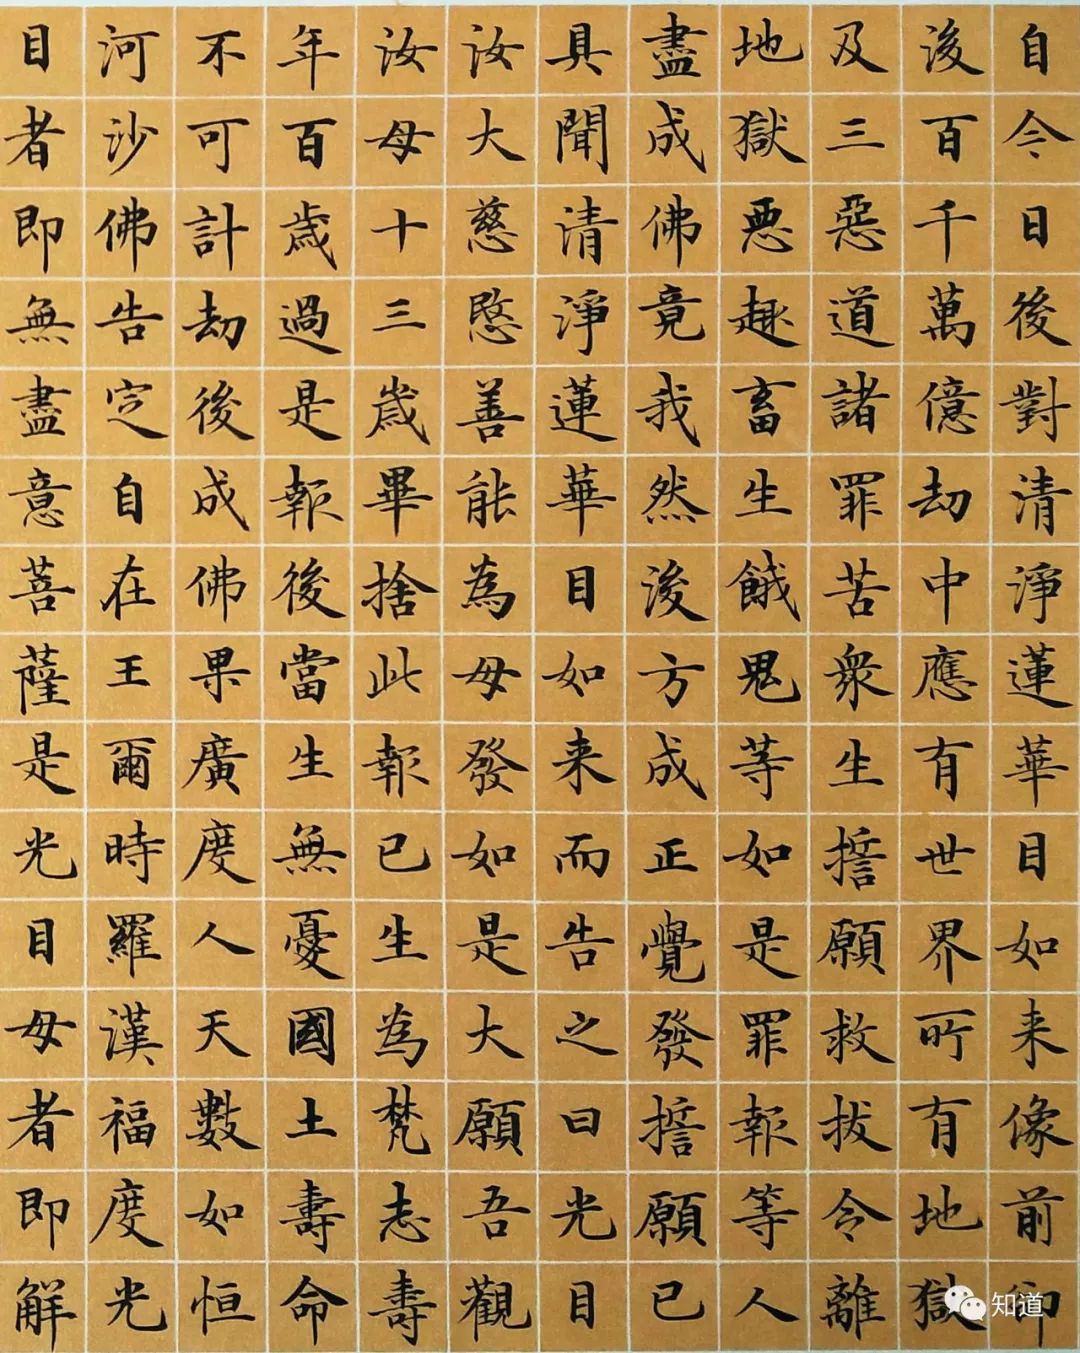 自今日後對清淨蓮華目如来像前卻
後百千萬億劫中應有世界所有地獄
及三惡道諸罪苦衆生誓願救拔令離
地獄惡趣畜生餓鬼等如是罪報等人
盡成佛竟我然後方成正覺發誓願已
具聞清淨蓮華目如来而告之曰光目
汝大慈愍善能為母發如是大願吾觀
汝母十三歲畢捨此報已生為梵志壽
年百歲過是報後當生無憂國土壽命
不可計劫後成佛果廣度人天數如恒
河沙佛告定自在王爾時羅漢福度光
目者即無盡意菩薩是光目母者即解
知道